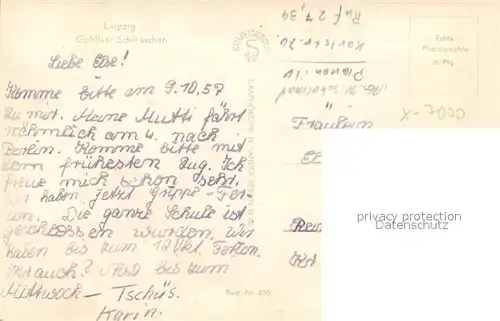 Leipzig
Gohliser Schlösschen
Liebe Else!
Komme bitte am 9.10.57
zu mir. Meine Mutti fährt
nähmlich am 4. nach
Berlin. Komme bitte mit
dem frühesten Zug. Ich
freue mich schon sehr.
Wir haben jetzt Grippe-Fer-
ien. Die ganze Schule ist
geschlossen wurden. Wir
haben bis zum 12. Okt. Ferien.
Ihr auch? Also bis zum
Mittwoch — Tschüs.
Karin.
Best.-Nr. 335
Ruf 27, 39
Karlstr. 20
Plauen i. V.
Echte
Photographie
Fräulein
privacy protection
Datenschutz